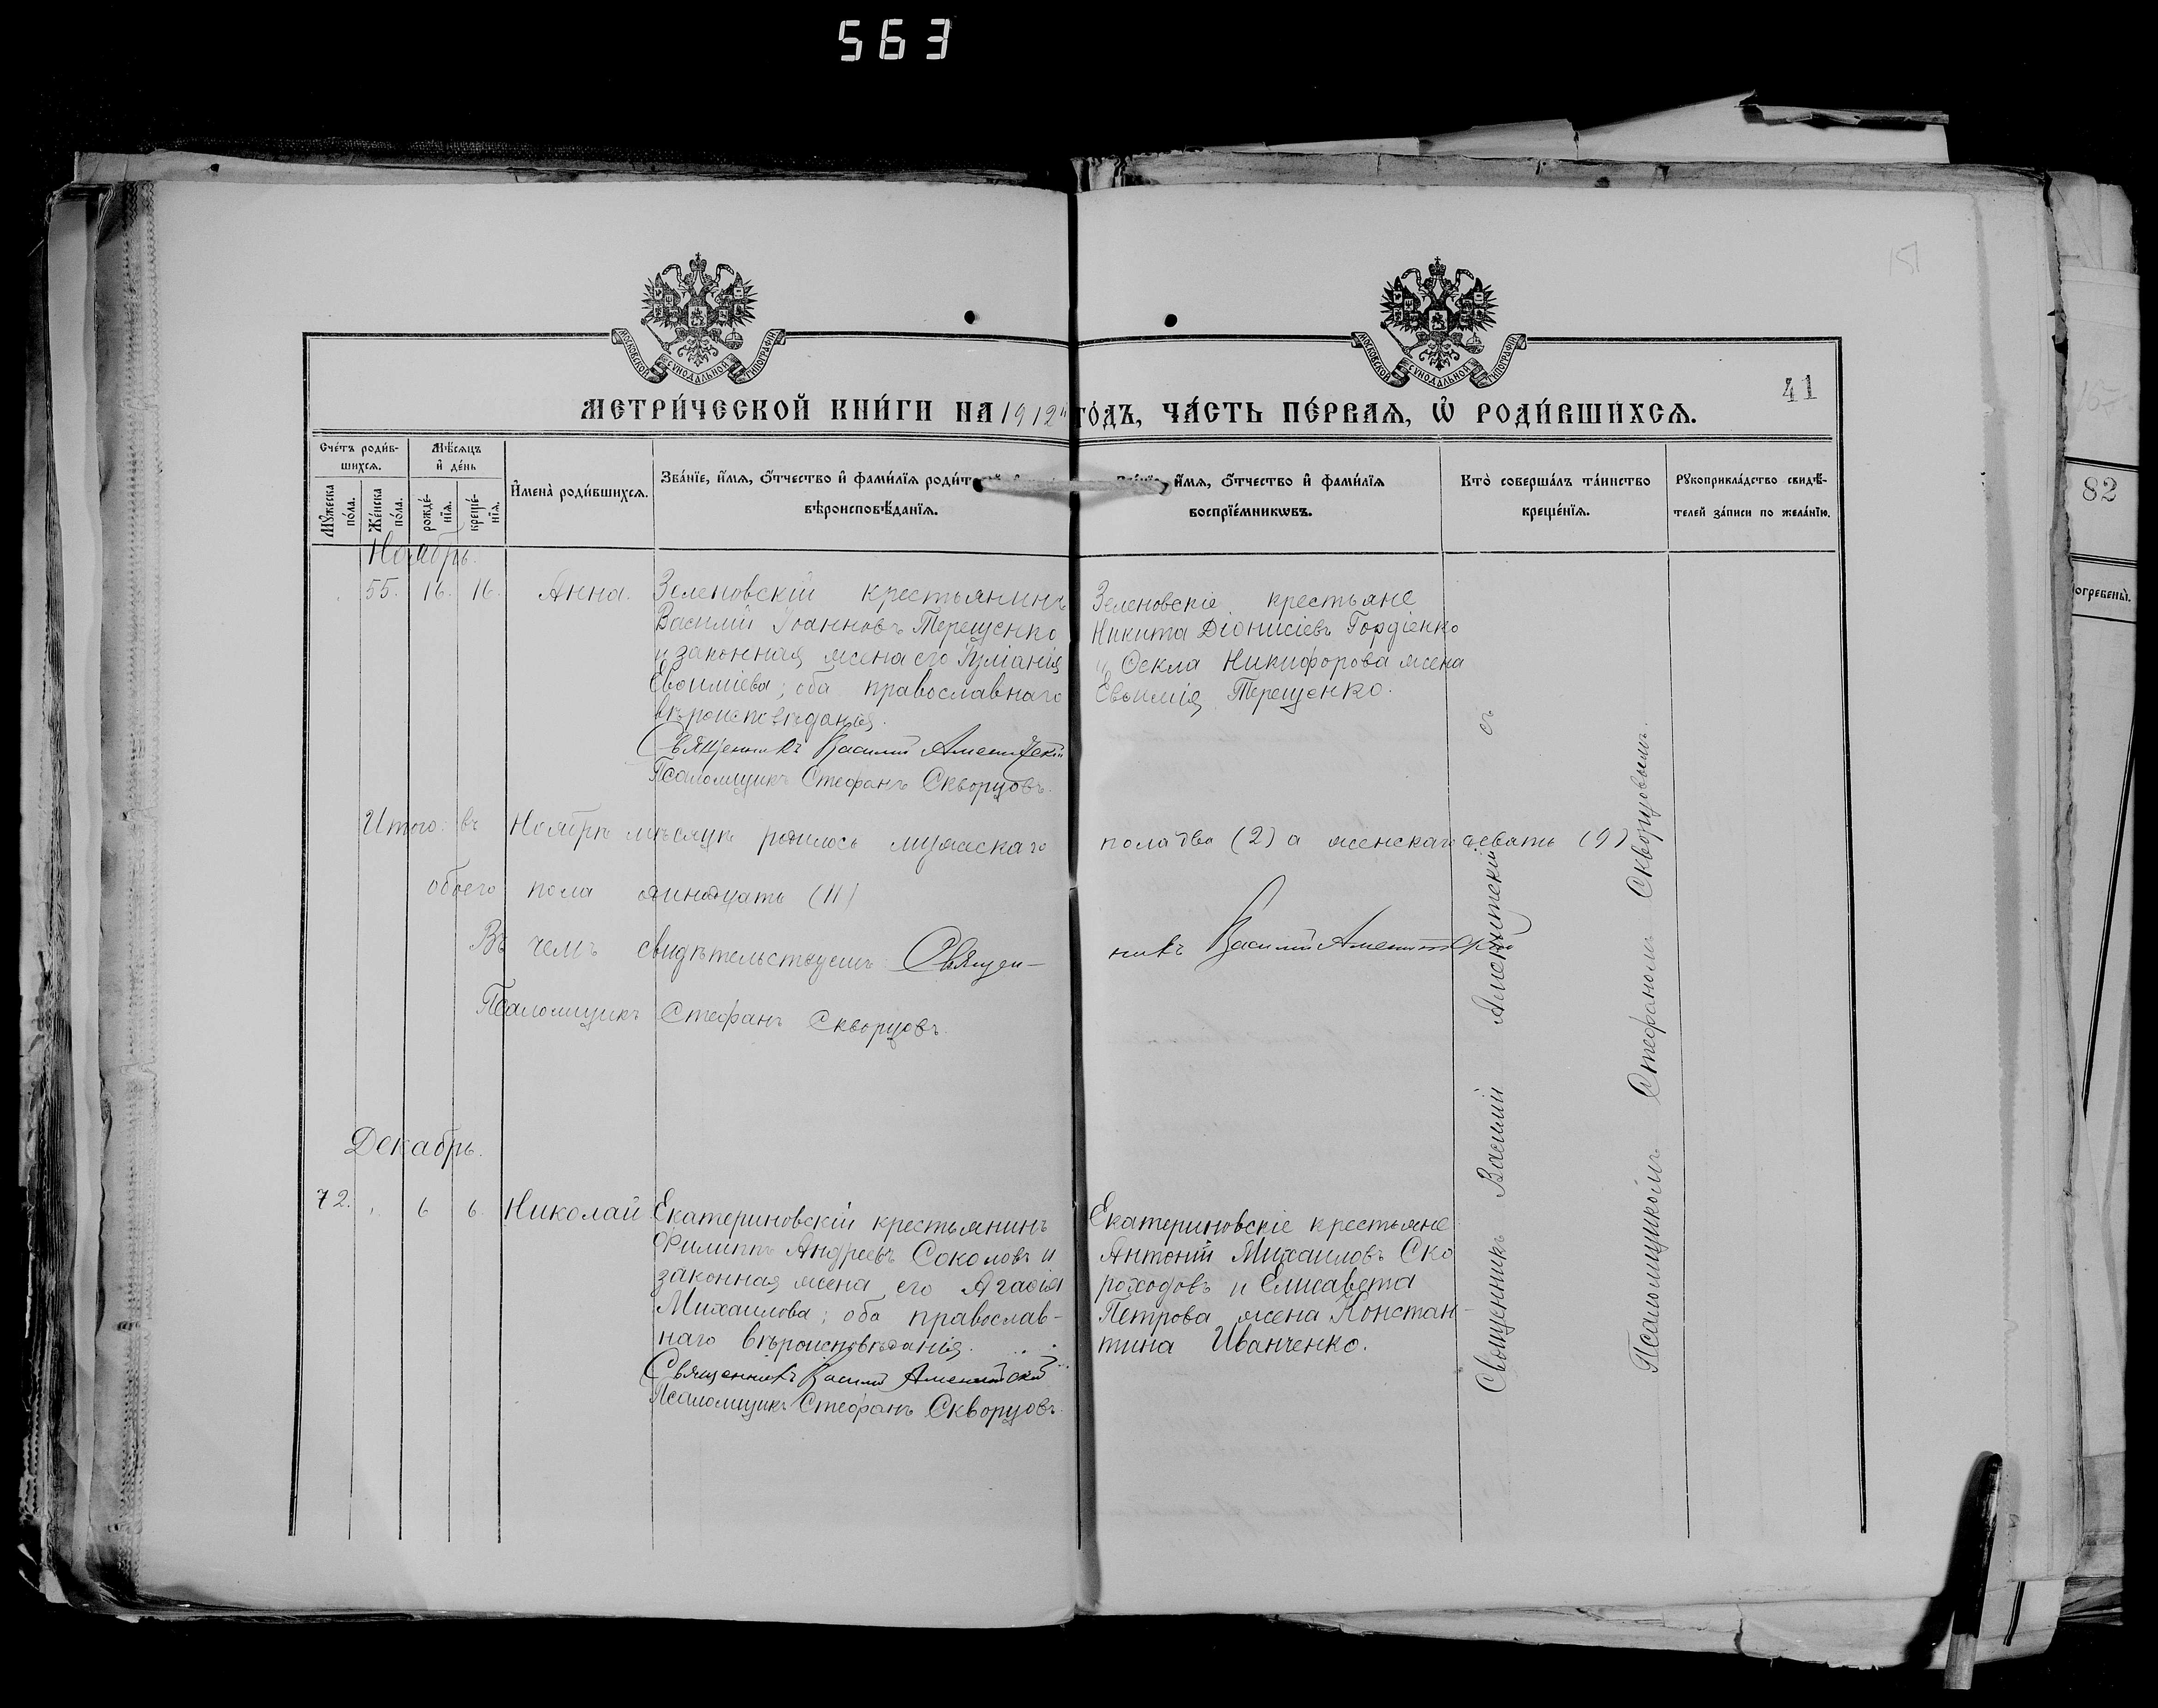 563
151
МОСКОВСКОЙ СѴНОДАЛЬНОЙ ТИПОГРАФІИ
МОСКОВСКОЙ СѴНОДАЛЬНОЙ ТИПОГРАФІИ
41
МЕТРИ́ЧЕСКОЙ КНИ́ГИ НА 1912й ГО́ДЪ, ЧА́СТЬ ПЕ́РВАЯ, Ѡ҆ РОДИ́ВШИХСЯ.
Сче́тъ роди́в-
шихся.
Мꙋ́жеска по́ла.
Же́нска по́ла.
Мѣ́сяцъ и҆ де́нь
рожде́-
нїя.
креще́-
нїя.
И҆мена̀ роди́вшихся.
Зва́нїе, и҆́мя, ѻ҆́тчество и҆ фами́лїя
вѣроисповѣ́данїя.
и҆́мя, ѻ҆́тчество и҆ фами́лїя
воспрїе́мникѡвъ.
Кто̀ соверша́лъ та́инство
креще́нїя.
Рꙋкоприкла́дство свидѣ́-
телей за́писи по жела́нїю.
Ноябрь.
55. 16. 16. Анна.
Зеленовскій крестьянинъ
Василій Іоанновъ Терещенко
и законная жена его Іуліанія
Евѳиміева; оба православнаго
вѣроисповѣданія.
Священникъ Василій Аменитскій
Псаломщикъ Стефанъ Скворцовъ.
Зеленовскіе крестьяне
Никита Діонисіевъ Гордіенко
и Ѳекла Никифорова жена
Евѳимія Терещенко.
Итого въ Ноябрѣ мѣсяцѣ родилось мужескаго пола два (2) а женскаго девять (9)
обоего пола одинадцать (11)
Въ чемъ свидѣтельствуемъ Священ-никъ Василій Аменитскій
Псаломщикъ Стефанъ Скворцовъ.
Декабрь.
72. 6 6. Николай
Екатериновскій крестьянинъ
Филиппъ Андреевъ Соколовъ и
законная жена его Агаѳія
Михаилова; оба православ-
наго вѣроисповѣданія.
Священникъ Василій Аменитскій
Псаломщикъ Стефанъ Скворцовъ.
Екатериновскіе крестьяне
Антоній Михаиловъ Ско
роходовъ и Елисавета
Петрова жена Констан-
тина Иванченко.
Священникъ Василій Аменитскій съ
Псаломщикомъ Стефаномъ Скворцовымъ.
82